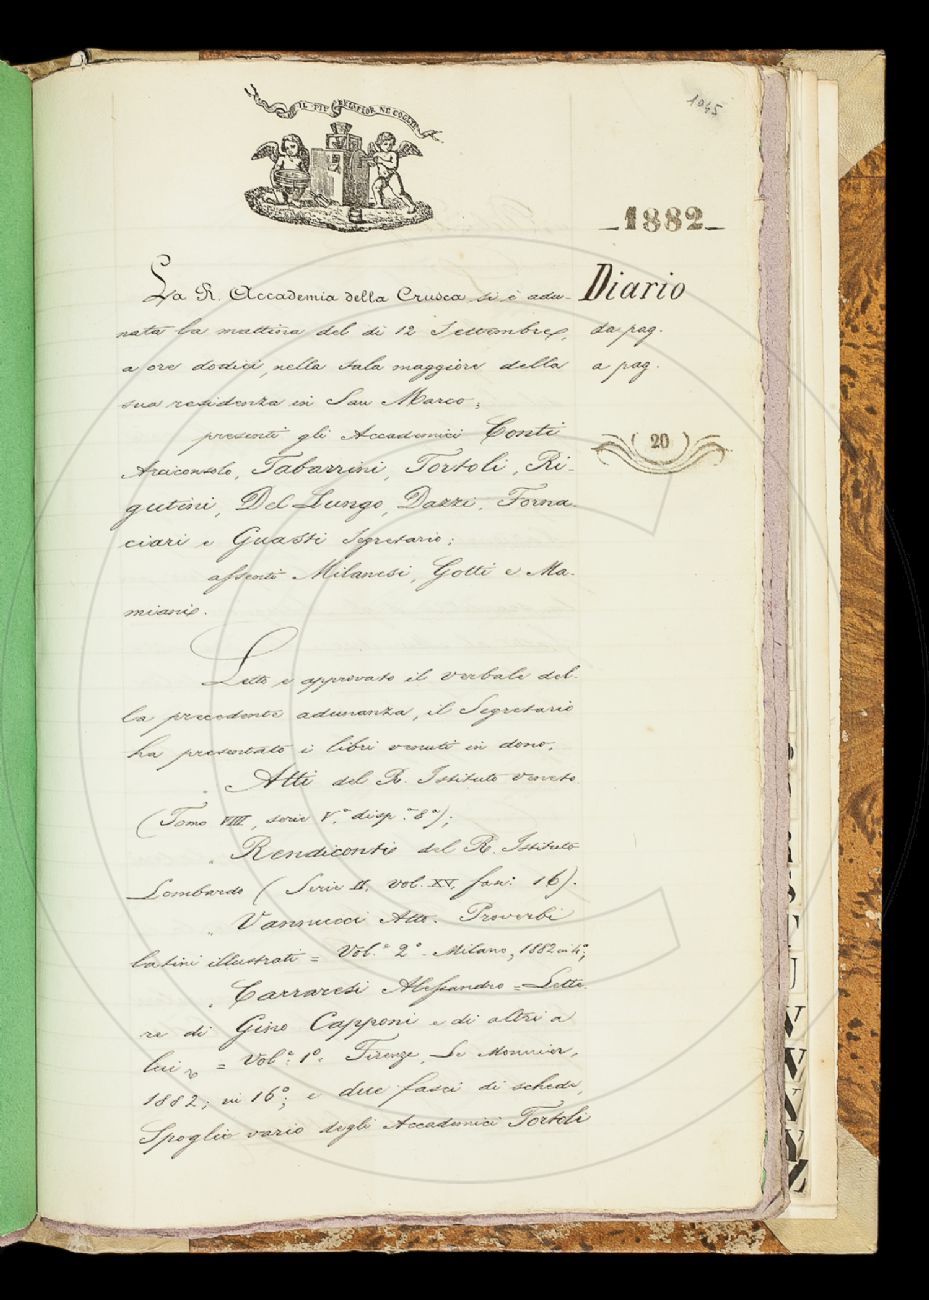 IL PIÙ BEL FIOR NE COGLIE
1045
1882
La R. Accademia della Crusca si è adu-
nata la mattina del di 12 Settembre,
a ore dodici, nella sala maggiore della
sua residenza in San Marco;
presenti gli Accademici Conti
Arciconsolo, Tabarrini, Tortoli, Ri-
gutini, Del Lungo, Dazzi, Forna-
ciari e Guasti Segretario;
assenti Milanesi, Gotti e Ma-
miani.
Diario
da pag.
a pag.
20
Letto e approvato il verbale del-
la precedente adunanza, il Segretario
ha presentato i libri venuti in dono.
Atti del R. Istituto Veneto
(Tomo VIII, serie V.ª disp.ª 8ª);
Rendiconti del R. Istituto
Lombardo (Serie II, vol. XV, fasc. 16).
Vannucci Atto. Proverbi
latini illustrati = Vol.º 2º - Milano, 1882 in 4º;
Carraresi Alessandro = Lette-
re di Gino Capponi e di altri a
lui = Vol.º 1º. Firenze, Le Monnier,
1882; in 16º; e due fasci di schede,
Spoglio vario degli Accademici Tortoli
R
S
T
U
V
W
X
Y
Z